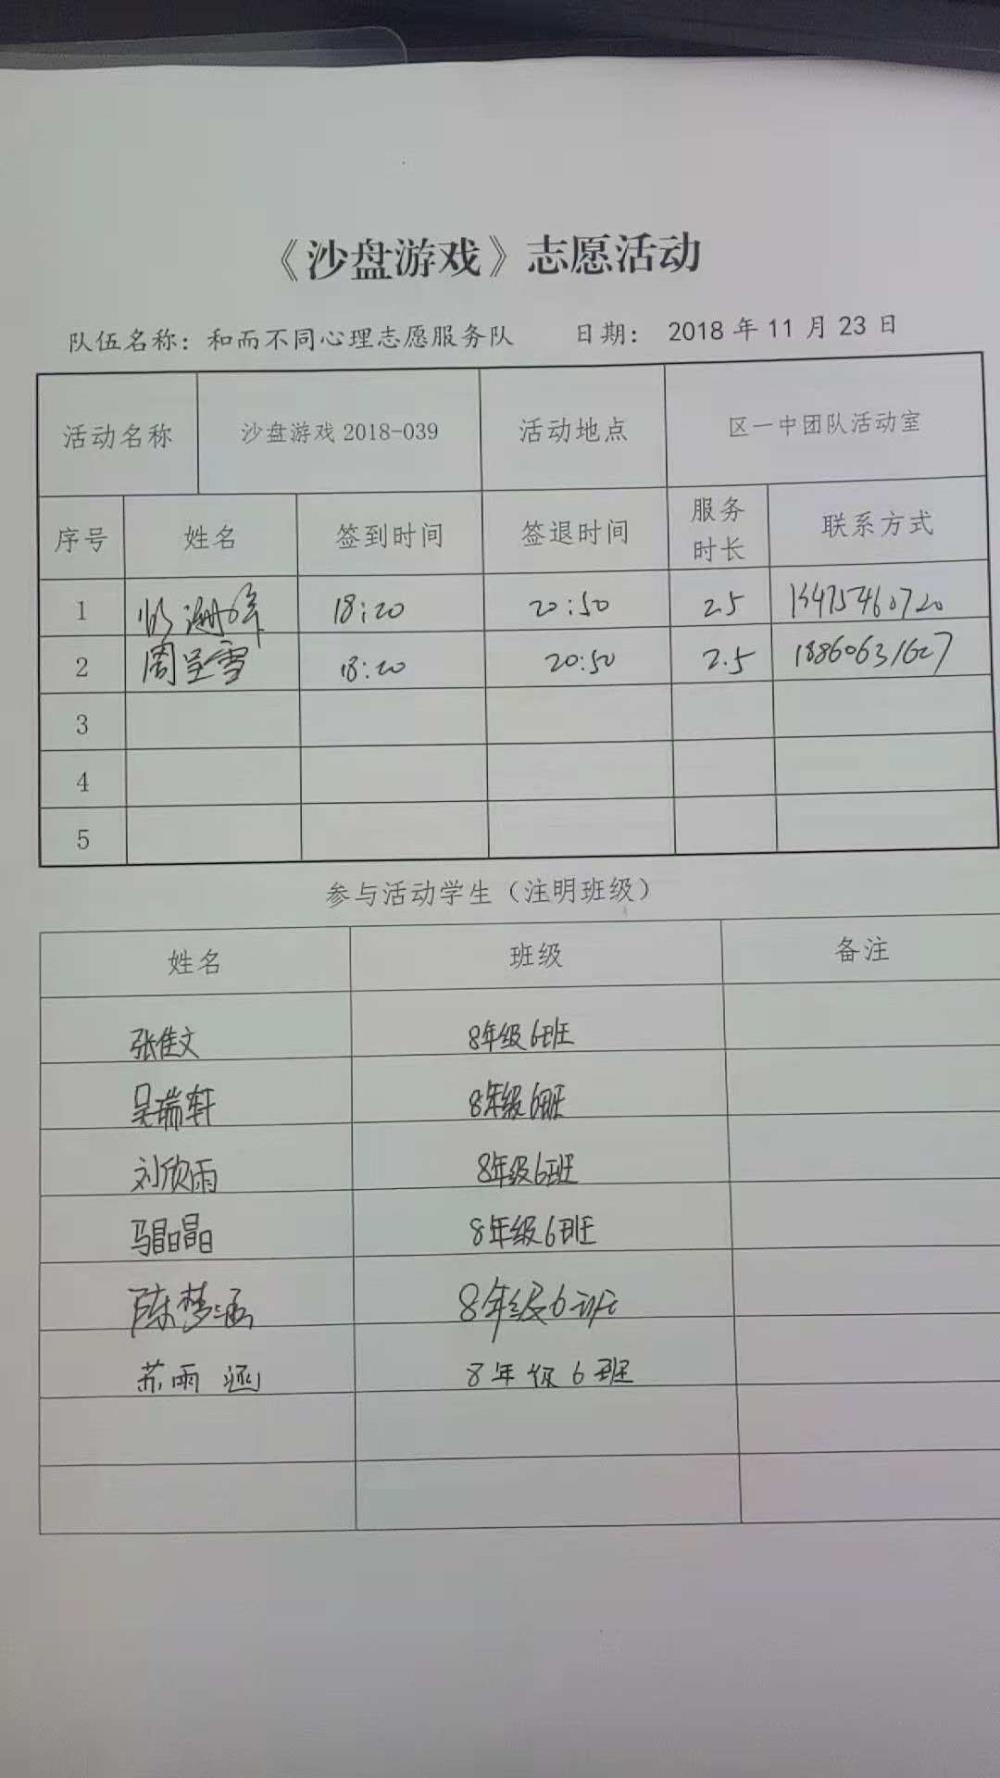 《沙盘游戏》志愿活动
队伍名称：和而不同心理志愿服务队 日期： 2018 年 11 月 23 日
活动名称 沙盘游戏 2018-039 活动地点 区一中团队活动室
序号 姓名 签到时间 签退时间 服务时长 联系方式
1 18:20 20:50 2.5 13475460720
2 周呈雪 18:20 20:50 2.5 18860631627
3
4
5
参与活动学生（注明班级）
姓名 班级 备注
张佳文 8年级6班
吴瑞轩 8年级6班
刘欣雨 8年级6班
马晶晶 8年级6班
陈梦涵 8年级6班
苏雨涵 8年级6班